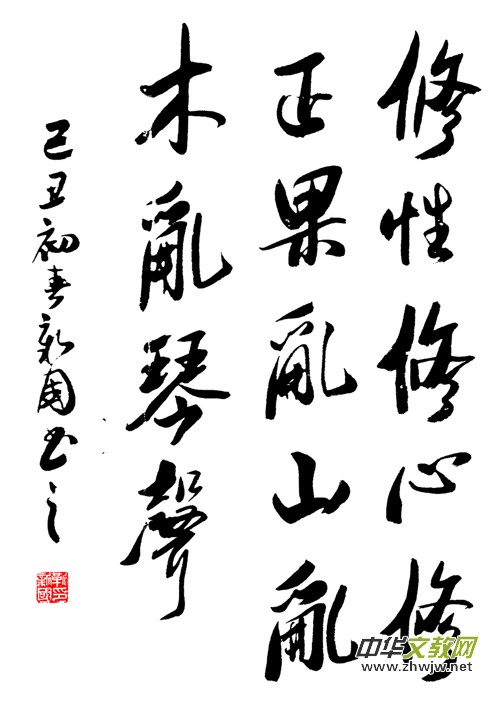 修性修心修
正果亂山亂
木亂琴聲
己丑初春新國书之
中华文教网
www.zhwjw.net